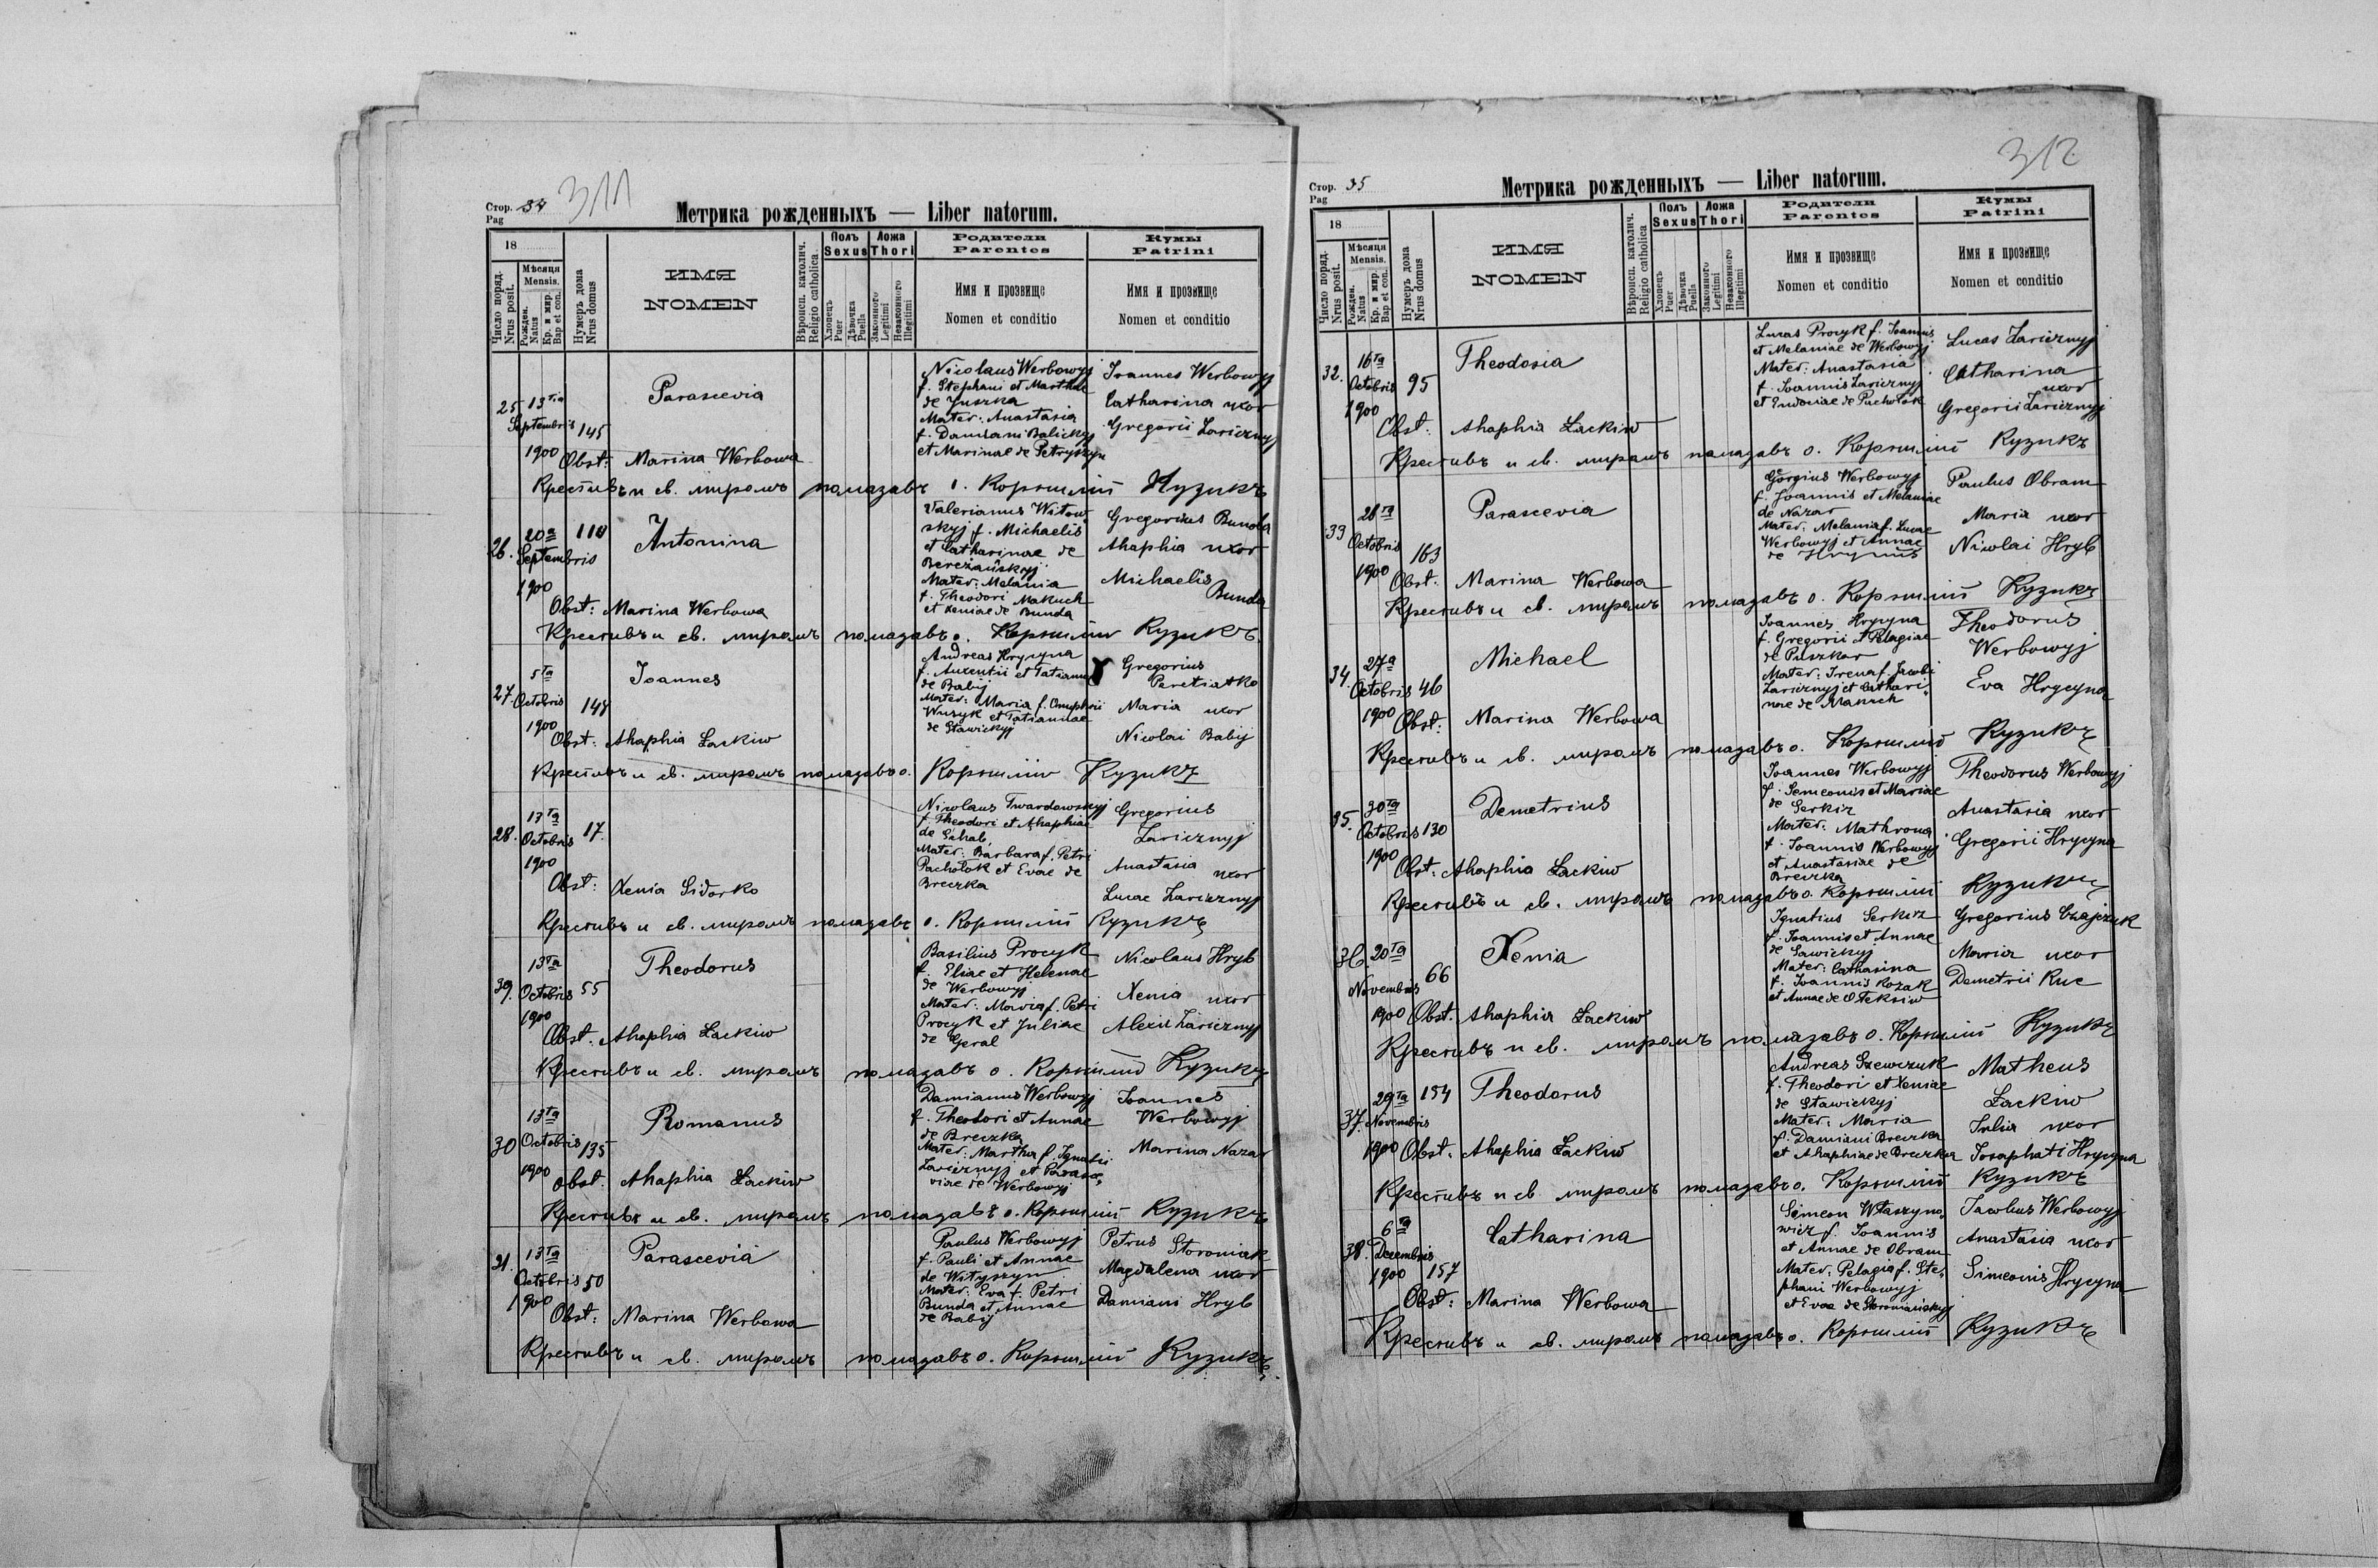 311
Стор. 34
Pag
Метрика рожденныхъ — Liber natorum.
18
Число поряд.
Nrus posit.
Мѣсяця
Mensis.
Рожден.
Natus
Кр. и мир.
Bap et con.
Нумеръ дома
Nrus domus
ИМЯ
NOMEN
Вѣроисп. католич.
Religio catholica.
Полъ
Sexus
Хлопець
Puer
Дѣвочка
Puella
Ложа
Thori
Законного
Legitimi
Незаконного
Illegitimi
Родители
Parentes
Имя и прозвище
Nomen et conditio
Кумы
Patrini
Имя и прозвище
Nomen et conditio
25 13tia
Septembris 145
1900
Parascevia
Obst: Marina Werbowa
Nicolaus Werbowyj
f. Stephani et Marthae
de Juszka
Mater: Anastasia
f. Damiani Balickyj
et Marinae de Petryszyn
Joannes Werbowyj
Catharina uxor
Gregorii Zaricznyj
Крестивъ и св. миромъ помазавъ о. Корнилій Кузикъ
26. 20a
Septembris
1900
Antonina
Obst: Marina Werbowa
Valerianus Witow
skyj f. Michaelis
et Catharinae de
Bereżańskyj
Mater: Melania
f. Theodori Makuch
et Xeniae de Bunda
Gregorius Bunda
Ahaphia uxor
Michaelis
Bunda
Крестивъ и св. миромъ помазавъ о. Корнилій Кузикъ
27. 5ta
Octobris 148
1900
Joannes
Obst: Ahaphia Łackiw
Andreas Hrycyna
f. Auxentii et Tatiannae
de Babij
Mater: Maria f. Onuphrii
Wuzyk et Tatiannae
de Stawickyj
Gregorius
Peretiatko
Maria uxor
Nicolai Babij
Крестивъ и св. миромъ помазавъ о. Корнилій Кузикъ
28. 13ta
Octobris 17.
1900
Obst: Xenia Sidorko
Nicolaus Twardowskyj
f. Theodori et Ahaphiae
de Schab,
Mater: Barbara f. Petri
Pachołok et Evae de
Breczka
Gregorius
Zaricznyj
Anastasia uxor
Lucae Zaricznyj
Крестивъ и св. миромъ помазавъ о. Корнилій Кузикъ
39. 13ta
Octobris 55
1900
Theodorus
Obst. Ahaphia Łackiw
Basilius Procyk
f. Eliae et Helenae
de Werbowyj
Mater: Maria f. Petri
Procyk et Juliae
de Geral
Nicolaus Hryb
Xenia uxor
Alexii Zaricznyj
Крестивъ и св. миромъ помазавъ о. Корнилій Кузикъ
30 13ta
Octobris 135
1900
Romanus
obst. Ahaphia Łackiw
Damianus Werbowyj
f. Theodori et Annae
de Breczka
Mater: Martha f. Ignatii
Zaricznyj et Parasce
viae de Werbowyj
Joannes
Werbowyj
Marina Nazar
Крестивъ и св. миромъ помазавъ о. Корнилій Кузикъ
31. 13ta
Octobris 50
1900
Parascevia
Obst: Marina Werbowa
Paulus Werbowyj
f. Pauli et Annae
de Wityszyn
Mater: Eva f. Petri
Bunda et Annae
de Babij
Petrus Storoniak
Magdalena uxor
Damiani Hryb
Крестивъ и св. миромъ помазавъ о. Корнилій Кузикъ
312
Стор. 35
Pag
Метрика рожденныхъ — Liber natorum.
18
Число поряд.
Nrus posit.
Мѣсяця
Mensis.
Рожден.
Natus
Кр. и мир.
Bap et con.
Нумеръ дома
Nrus domus
ИМЯ
NOMEN
Вѣроисп. католич.
Religio catholica
Полъ
Sexus
Хлопецъ
Puer
Дѣвочка
Puella
Ложа
Thori
Законного
Legitimi
Незаконного
Illegitimi
Родители
Parentes
Имя и прозвище
Nomen et conditio
Кумы
Patrini
Имя и прозвище
Nomen et conditio
32. 16ta
Octobris 95
1900
Theodosia
Obst: Ahaphia Łackiw
Lucas Procyk f. Joannis
et Melaniae de Werbowyj
Mater: Anastasia
f. Joannis Zaricznyj
et Eudociae de Pachołok
Lucas Zaricznyj
Catharina
uxor
Gregorii Zaricznyj
Крестивъ и св. миромъ помазавъ о. Корнилій Кузикъ
33 26ta
Octobris 163
1900
Parascevia
Obst. Marina Werbowa
Görgius Werbowyj
f. Joannis et Melaniae
de Nazar
Mater: Melania f. Lucae
Werbowyj et Annae
de
Paulus Obram
Maria uxor
Nicolai Hryb
Крестивъ и св. миромъ помазавъ о. Корнилій Кузикъ
34. 27a
Octobris 46
1900
Michael
Obst: Marina Werbowa
Joannes Hrycyna
f. Gregorii et Pelagiae
de Puszkar
Mater: Irena f. Jacobi
Zaricznyj et Cathari
nae de Makuch
Theodorus
Werbowyj
Eva Hrycyna
Крестивъ и св. миромъ помазавъ о. Корнилій Кузикъ
35. 30ta
Octobris 130
1900
Demetrius
Obst. Ahaphia Łackiw
Joannes Werbowyj
f. Semeonis et Mariae
de Serkiz
Mater: Mathrona
f. Joannis Werbowyj
et Anastasiae de
Breczka
Theodorus Werbowyj
Anastasia uxor
Gregorii Hrycyna
Крестивъ и св. миромъ помазавъ о. Корнилій Кузикъ
36. 20ta
Novembris 66
1900
Xenia
Obst. Ahaphia Łackiw
Ignatius Serkiz
f. Joannis et Annae
de Sawickyj
Mater: Catharina
f. Joannis Kozak
et Annae de Ołeksiw
Gregorius Czajczuk
Maria uxor
Demetrii Kuc
Крестивъ и св. миромъ помазавъ о. Корнилій Кузикъ
37. 29ta 154
Novembris
1900
Theodorus
Obst. Ahaphia Łackiw
Andreas Szewczuk
f. Theodori et Xeniae
de Stawickyj
Mater: Maria
f. Damiani Breczka
et Ahaphiae de Breczka
Matheus
Łackiw
Julia uxor
Josaphati Hrycyna
Крестивъ и св миромъ помазавъ о. Корнилій Кузикъ
38. 6ta
Decembris
1900 157
Catharina
Obst: Marina Werbowa
Simeon Właszyno
wicz f. Joannis
et Annae de Obram
Mater: Pelagia f. Ste
phani Werbowyj
et Evae de Storoniańskyj
Jacobus Werbowyj
Anastasia uxor
Simeonis Hrycyna
Крестивъ и св. миромъ помазавъ о. Корнилій Кузикъ